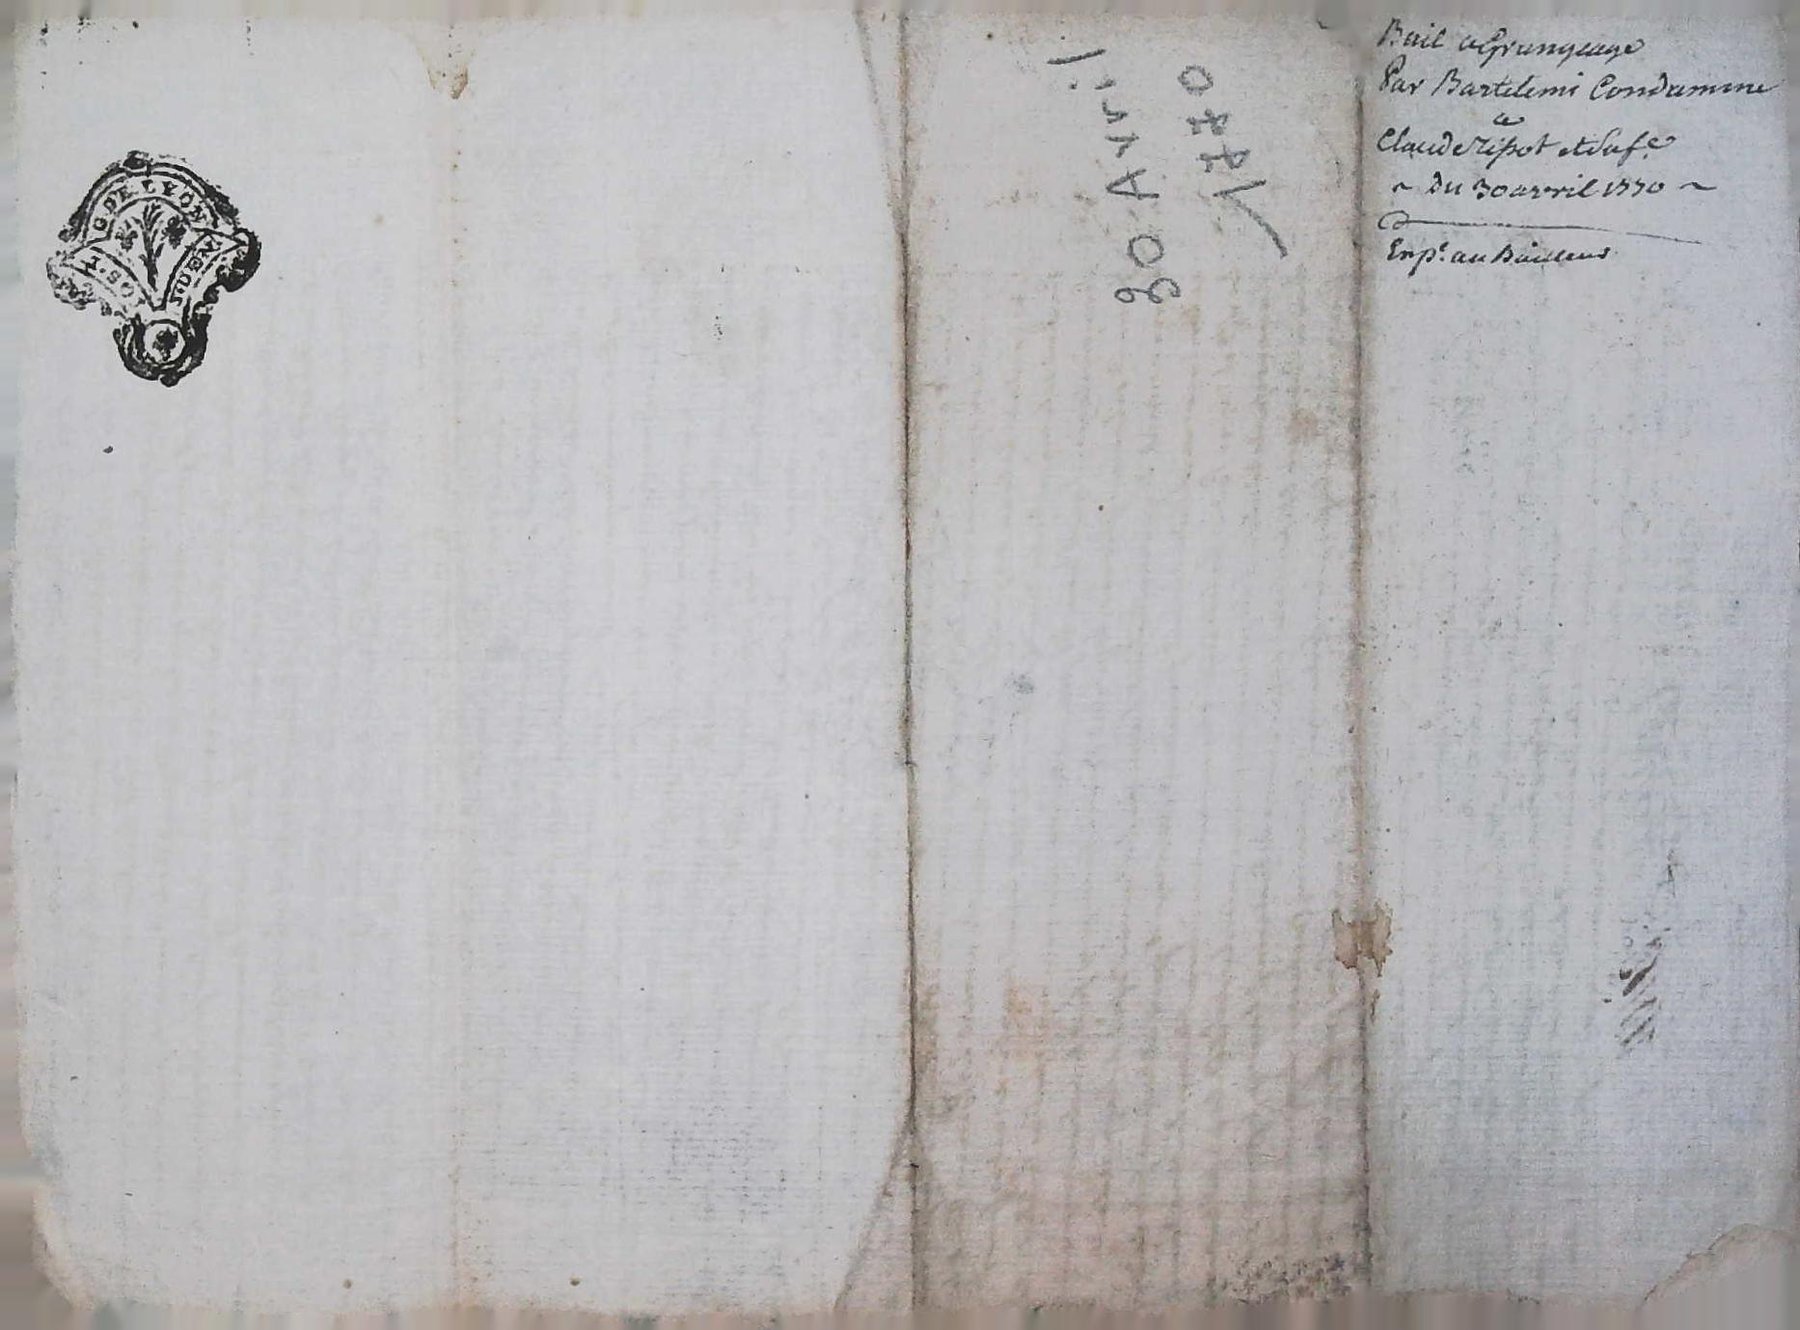 G. DE LYON
30 Avril
1770
Bail a Grangeage
Par Bartelemi Condamine
a
Claude Ripot et sa fe
~ du 30 avril 1770 ~
Exp. au Bailleur